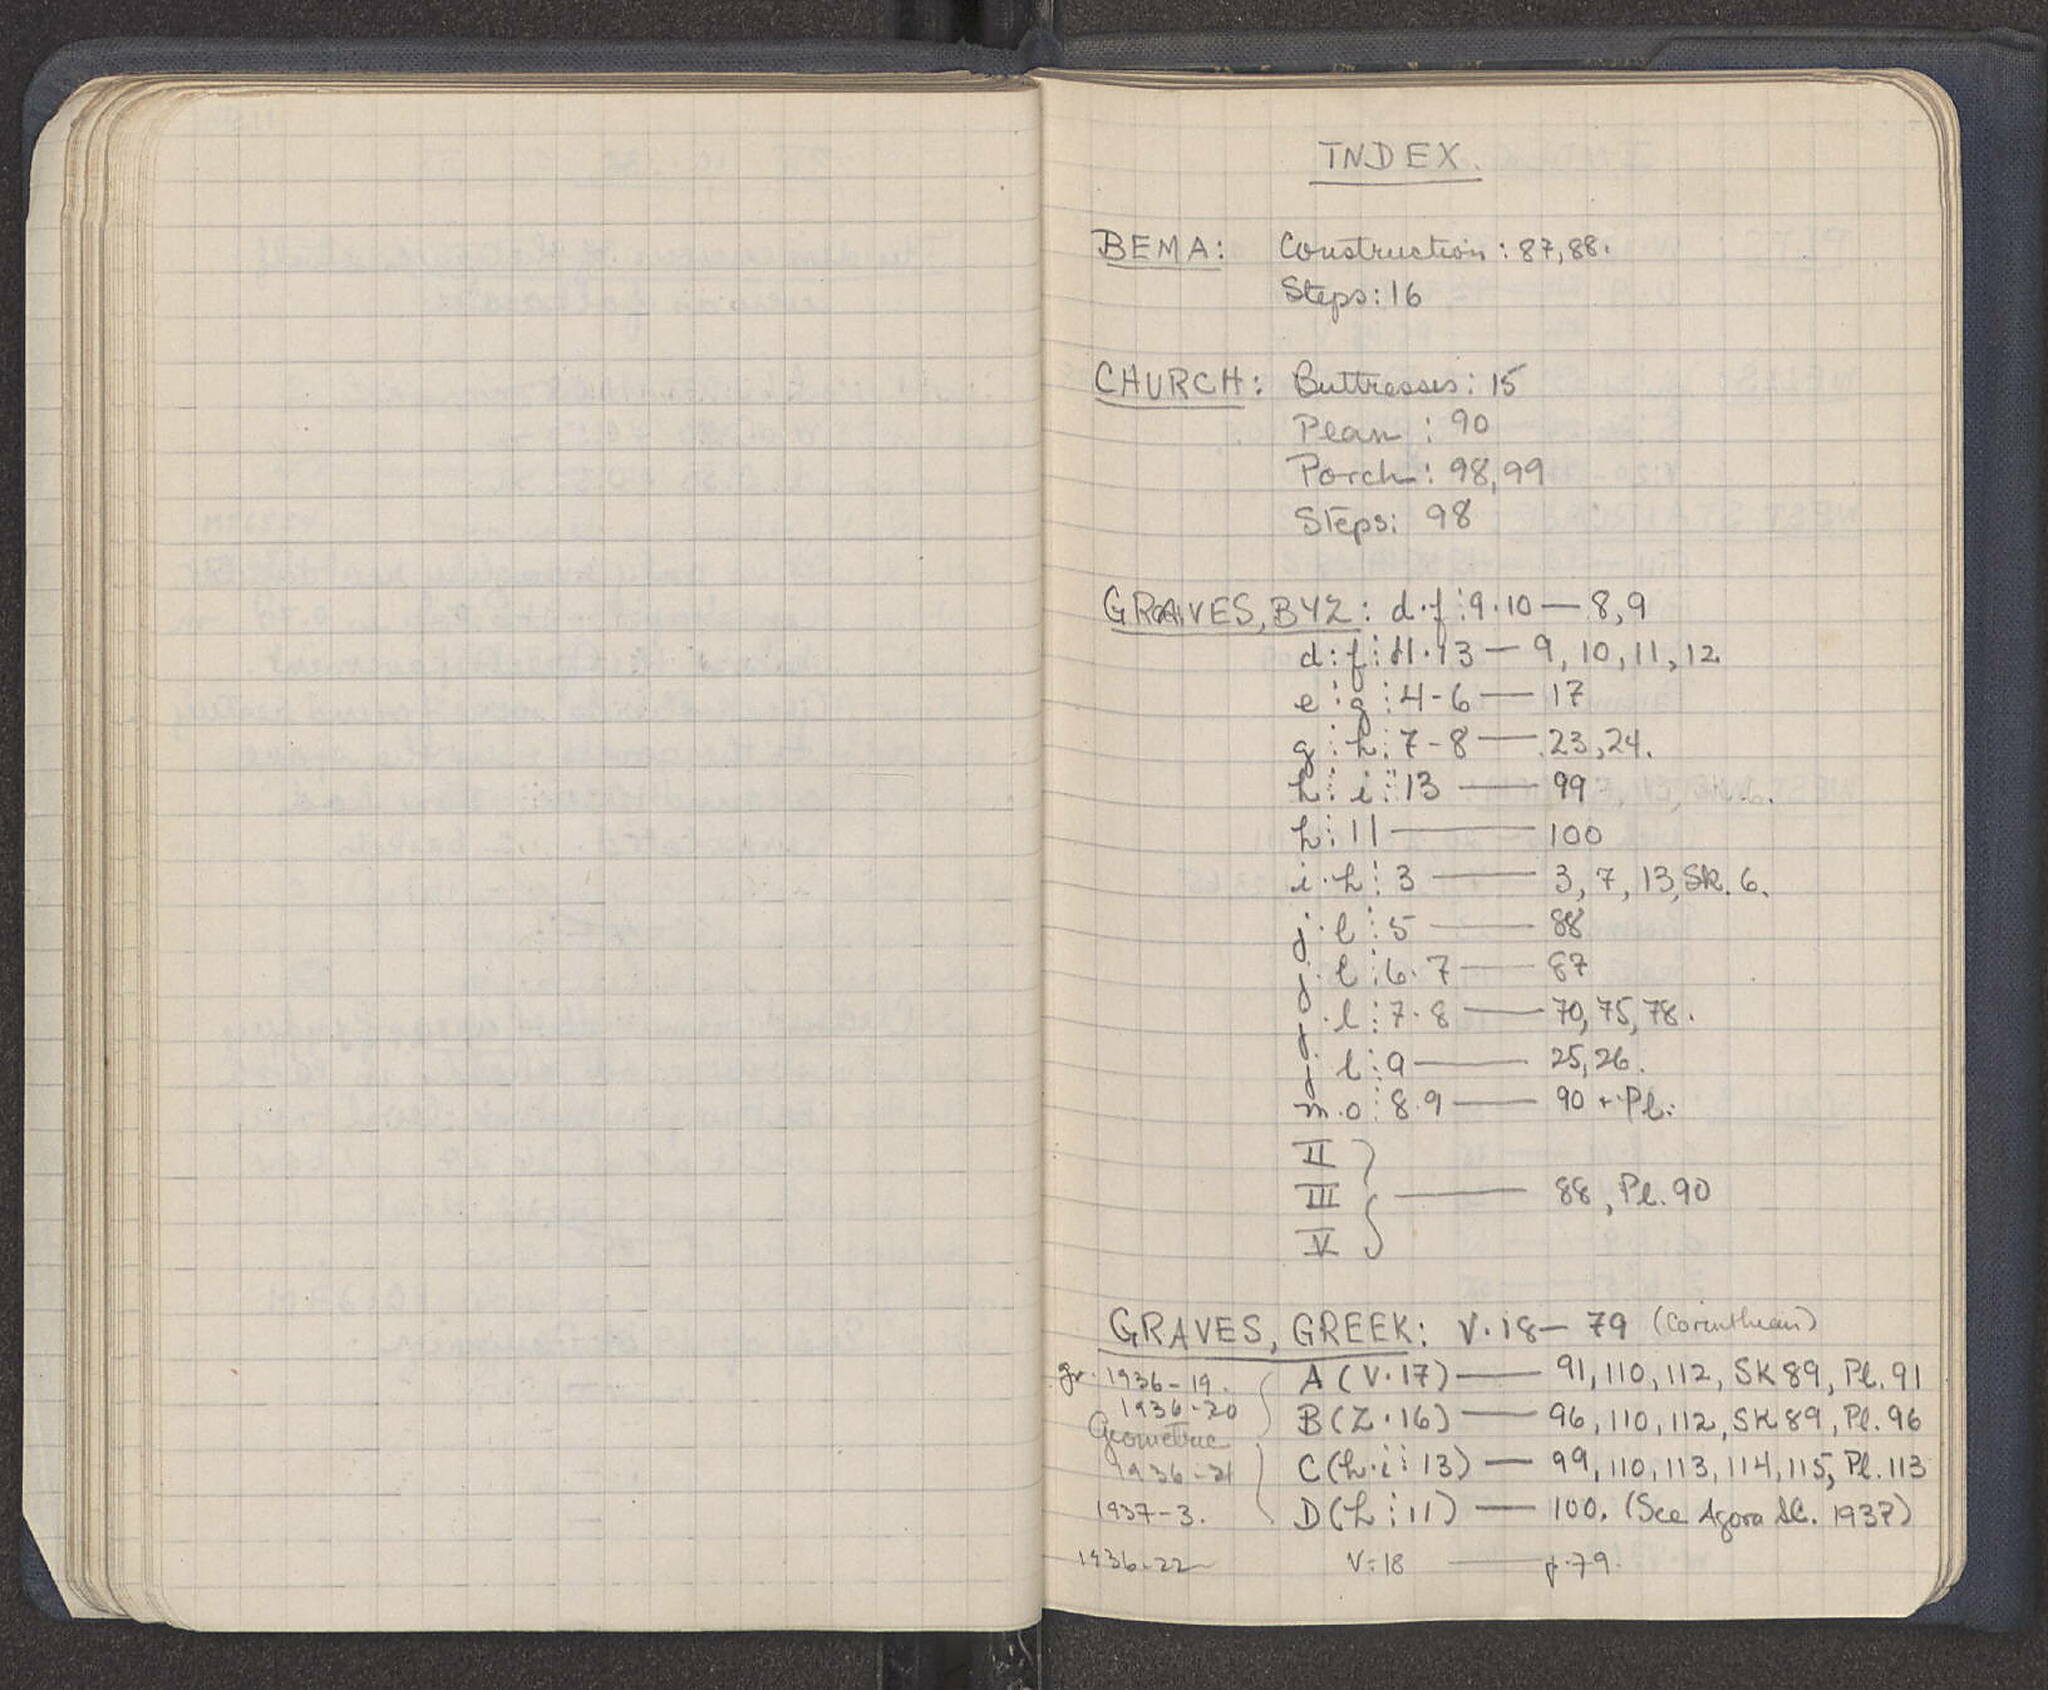 INDEX.
BEMA: Construction: 87, 88.
Steps: 16
CHURCH: Buttresses: 15
Plan : 90
Porch: 98, 99
Steps: 98
GRAVES, BYZ: d·f:9·10 — 8, 9
d:f:11·13 — 9, 10, 11, 12
e:g:4-6 — 17
g:h:7-8 — 23, 24.
h:i:13 — 99
h:11 — 100
i·h:3 — 3, 7, 13, Sk. 6.
j·l:5 — 88
j·l:6·7 — 87
j·l:7·8 — 70, 75, 78.
j l:9 — 25, 26.
m·o:8·9 — 90 + Pl.
II
III — 88, Pl. 90
V
GRAVES, GREEK: V·18 — 79 (Corinthian)
gr. 1936-19. A (V·17) — 91, 110, 112, SK 89, Pl. 91
1936-20 B (Z·16) — 96, 110, 112, SK 89, Pl. 96
Geometric
1936-21 C (h·i:13) — 99, 110, 113, 114, 115, Pl. 113
1937-3. D (h:11) — 100. (See Agora SC. 1937)
1936-22 V:18 — p. 79.